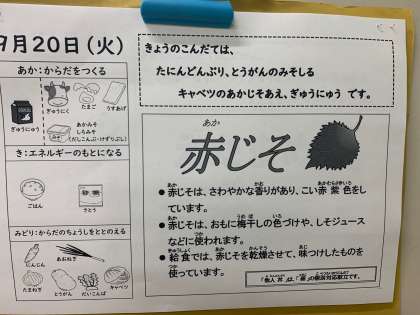 9月20日（火）
あか：からだをつくる
ぎゅうにゅう
ぎゅうにく
たまご
うすあげ
あかみそ
しろみそ
（だしこんぶ・けずりぶし）
き：エネルギーのもとになる
ごはん
さとう
みどり：からだのちょうしをととのえる
にんじん
あおねぎ
たまねぎ
とうがん
だいこんば
キャベツ
きょうのこんだては、
たにんどんぶり、とうがんのみそしる
キャベツのあかじそあえ、ぎゅうにゅう です。
あか
赤じそ
●赤じそは、さわやかな香りがあり、こい赤紫色をし
ています。
●赤じそは、おもに梅干しの色づけや、しそジュース
などに使われます。
●給食では、赤じそを乾燥させて、味つけしたものを
使っています。